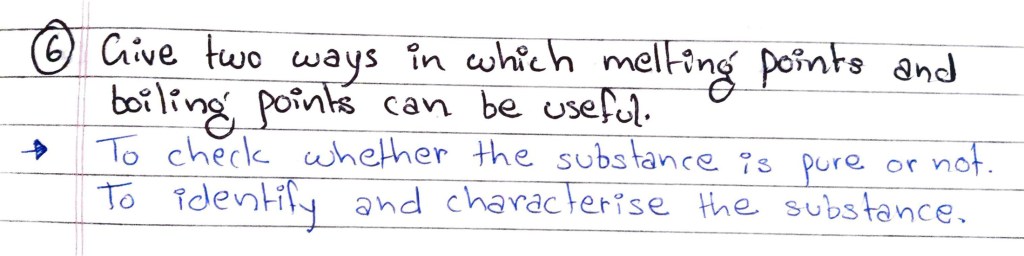 ⑥ Give two ways in which melting points and
boiling points can be useful.
→ To check whether the substance is pure or not.
To identify and characterise the substance.